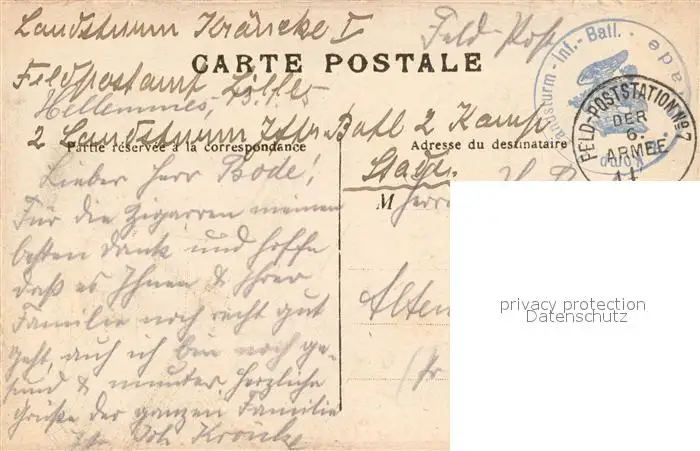 Landsturm Kräncke I
Feld-Post
CARTE POSTALE
Feldpostamt Lille
Hellemmes,
2 Landsturm Inftr Batl 2 Komp
Stade.
Partie réservée à la correspondance
Adresse du destinataire
andsturm - Inf.- Batl. Stade
Komp
FELD-POSTSTATION No 7
DER
6.
ARMEE
Lieber Herr Bode!
Für die Zigarren meinen
besten Dank und hoffe
daß es Ihnen & Ihrer
Familie noch recht gut
geht, auch ich bin noch ge-
sund & munter herzliche
Grüße der ganzen Familie
Joh. Kröncke
M Herrn
Alten
privacy protection
Datenschutz